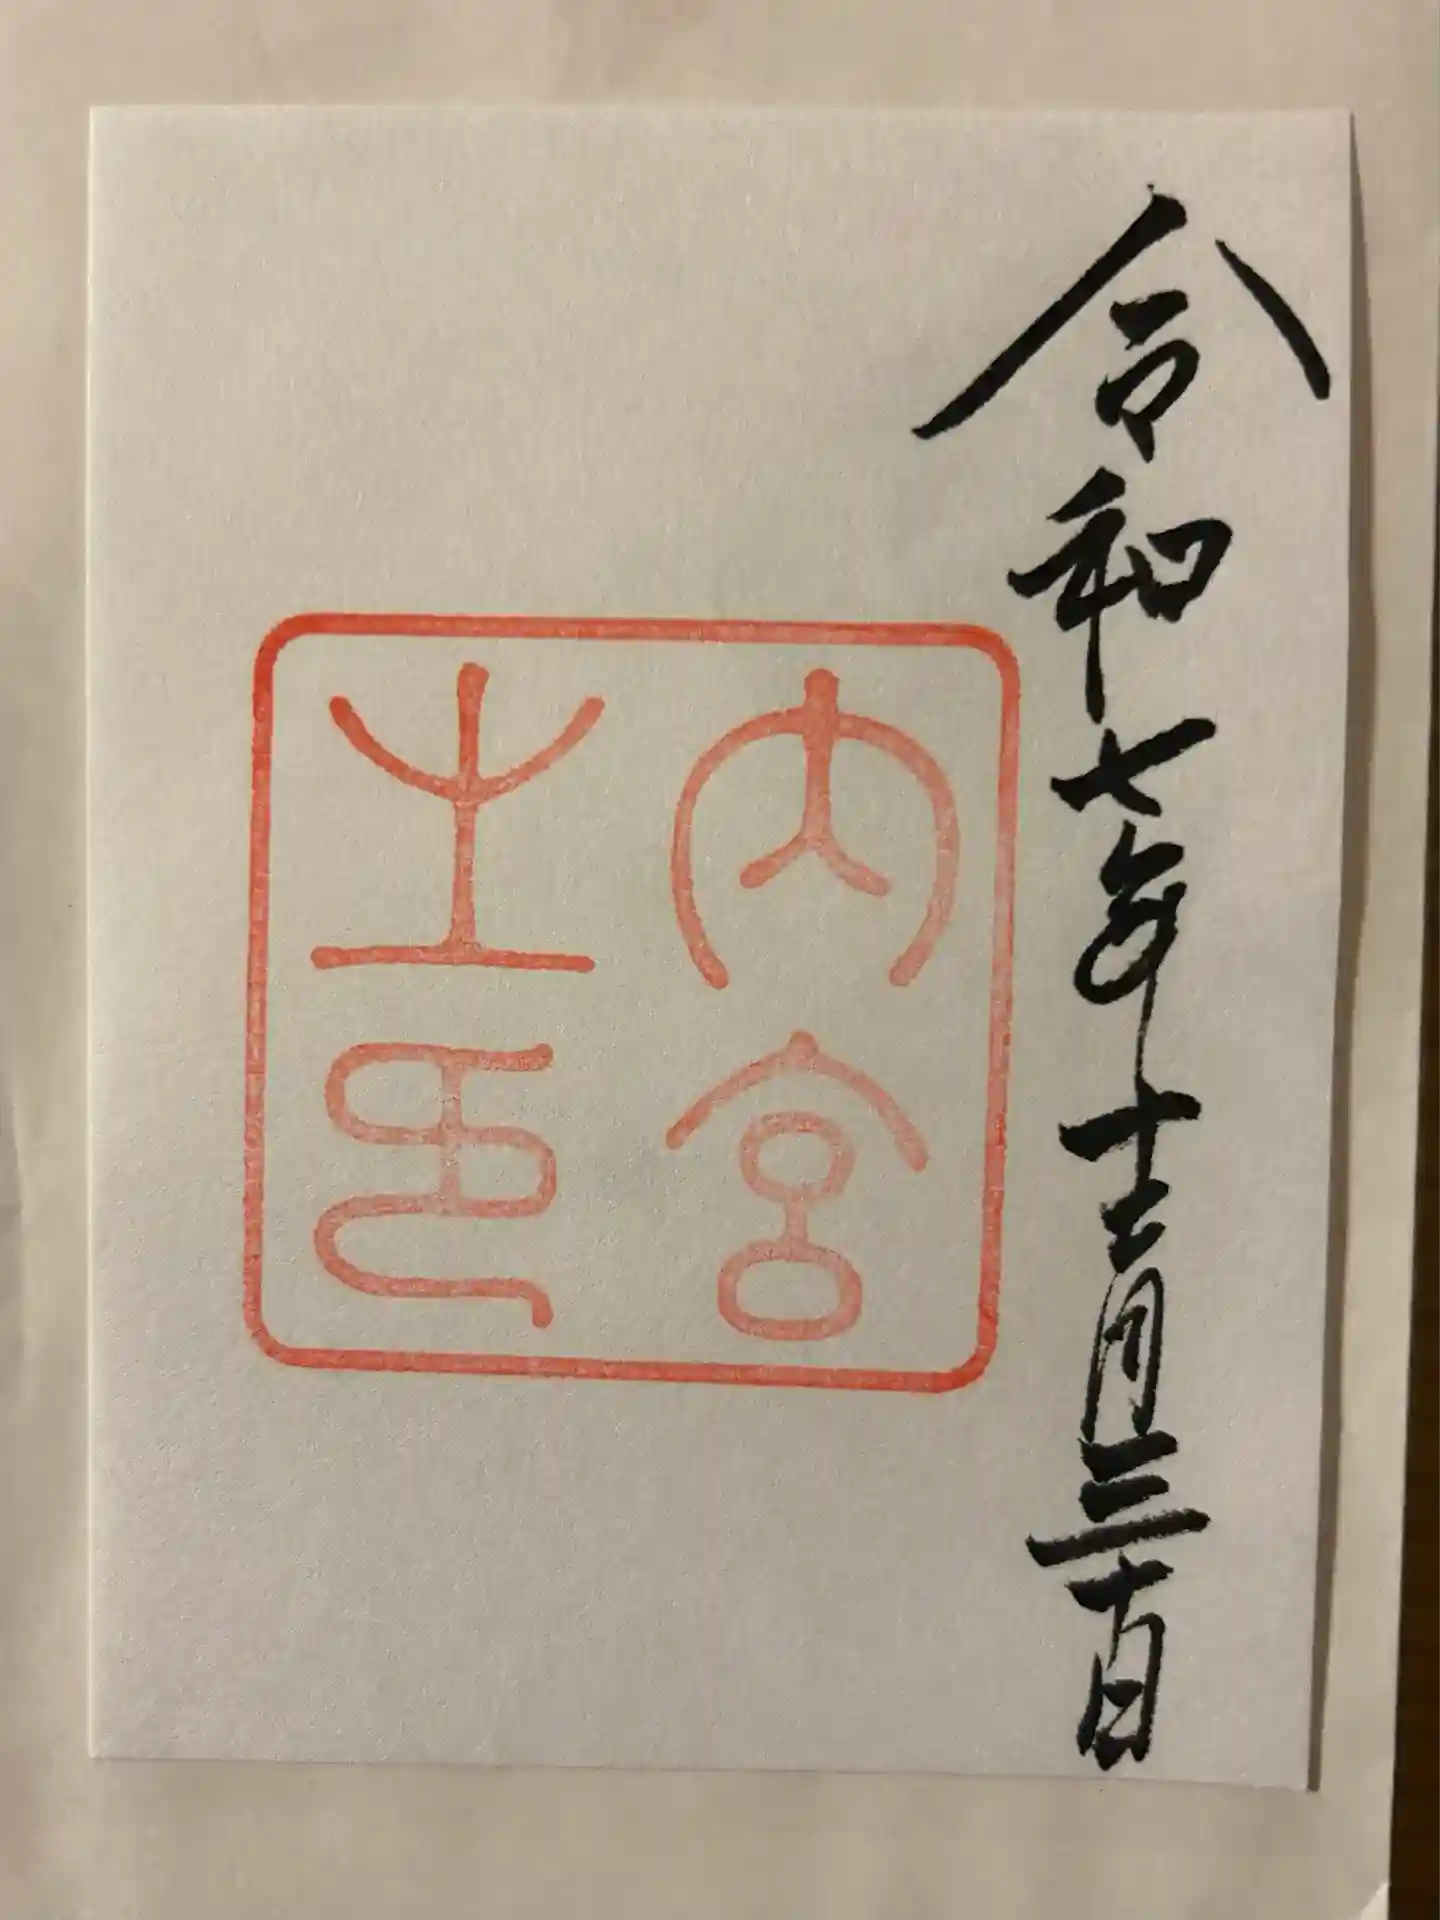 令和七年十二月三十日
内宮
之印